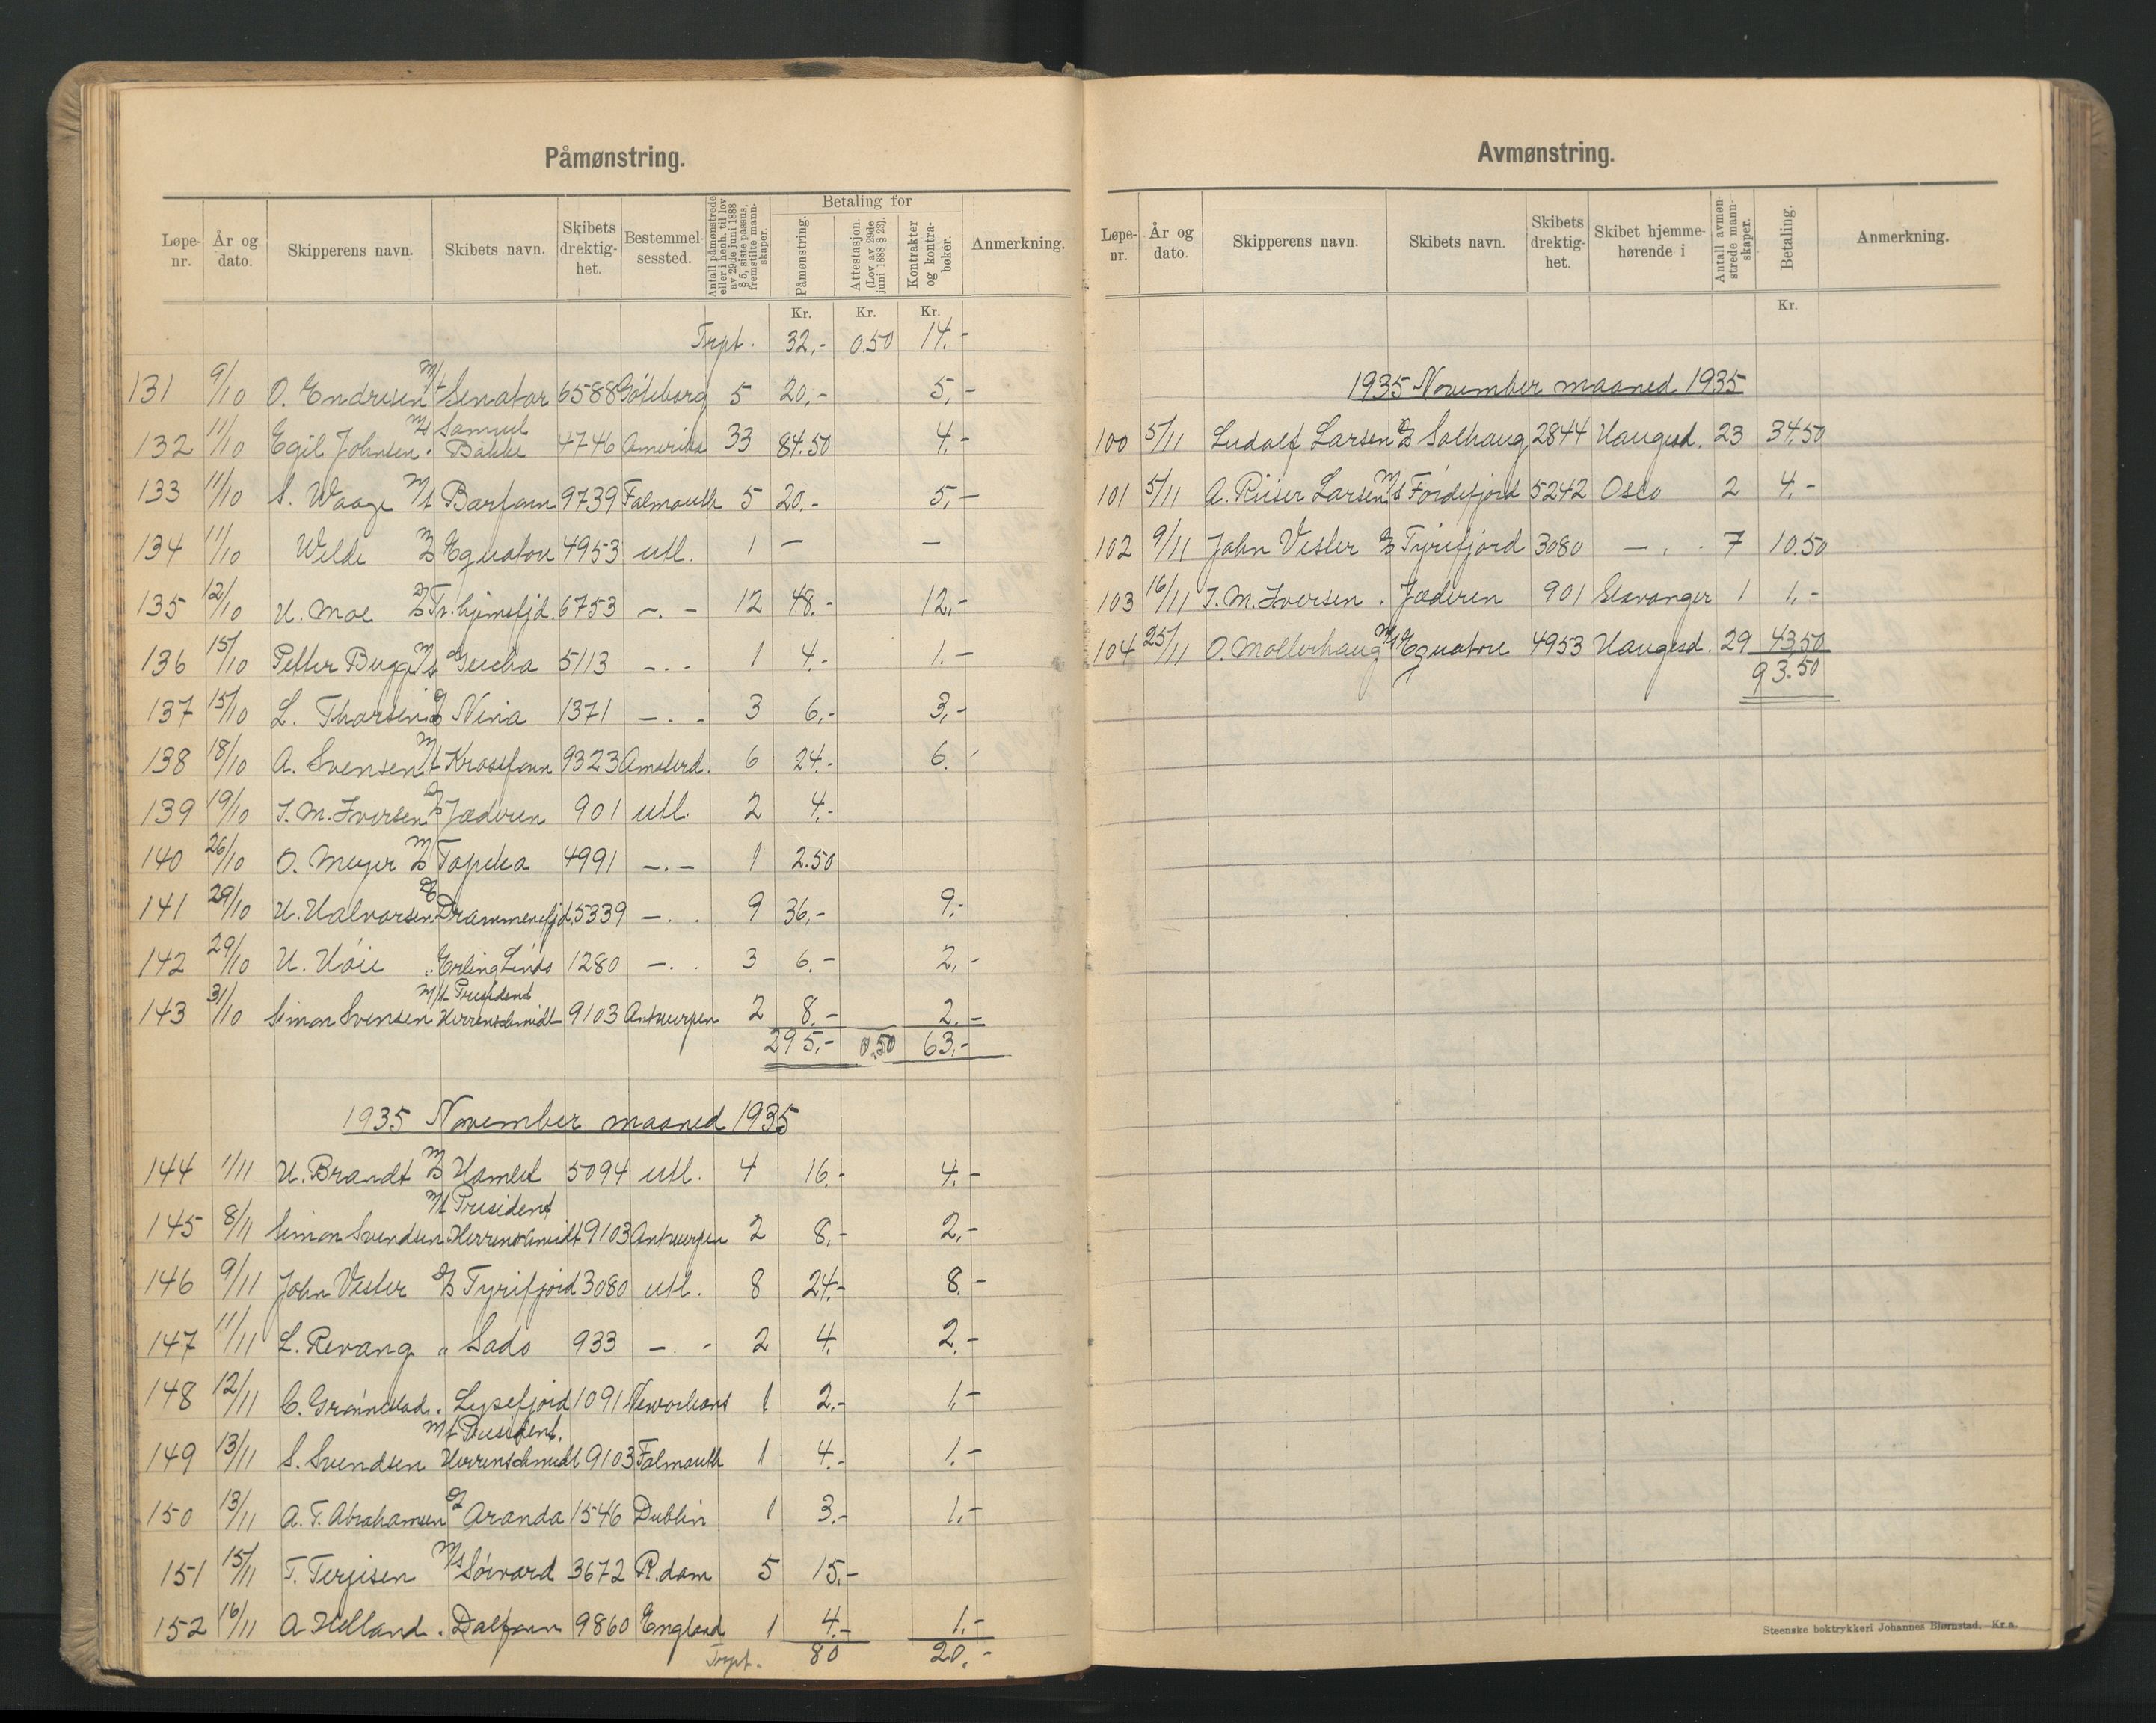 Påmønstring.
Løpe-nr. År og dato. Skipperens navn. Skibets navn. Skibets drektig-het. Bestemmel-sessted. Antall påmønstrede eller i henh. til lov av 29de juni 1888 § 5, siste passus, fremstilte mann-skaper. Betaling for Påmønstring. Attestasjon. (Lov av 29de juni 1888 § 23). Kontrakter og kontra-bøker. Anmerkning.
Kr. Kr. Kr.
Trpt. 32,- 0.50 14.-
131 9/10 O. Endresen M/t Senator 6588 Göteborg 5 20,- 5,-
132 11/10 Egil Johnsen. M/s Samuel Bakke 4746 Amerika 33 84.50 4.-
133 11/10 S. Waage M/t Barfonn 9739 Falmouth 5 20.- 5,-
134 11/10 Wilde M/s Eguatore 4953 utl. 1 — —
135 12/10 H. Moe D/s Tr.hjemsfjd. 6753 -. - 12 48.- 12,-
136 15/10 Petter Bugge M/s Geisha 5113 -.- 1 4.- 1.-
137 15/10 L. Thorsen D/s Nina 1371 -. - 3 6,- 3,-
138 18/10 A. Svensen M/t Krossfonn 9323 Amsterd. 6 24.- 6.-
139 19/10 T. M. Iversen D/s Jæderen 901 utl. 2 4.-
140 26/10 O. Meyer M/s Topeka 4991 -.- 1 2.50
141 29/10 H. Halvorsen. D/s Drammensfjd. 5339 -. . 9 36,- 9.-
142 29/10 H. Höie " Erling Lindö 1280 -. . 3 6.- 2,-
143 31/10 Simon Svensen M/t President Herrenschmidt 9103 Antwerpen 2 8.- 2.-
295,- 0,50 63,-
1935 November maaned 1935
144 1/11 H. Brandt M/s Hamlet 5094 utl. 4 16.- 4.-
145 8/11 Simon Svendsen M/t President Herrenschmidt 9103 Antwerpen 2 8,- 2,-
146 9/11 John Vesler D/s Tyrifjord 3080 utl. 8 24.- 8.-
147 11/11 L. Revang " Sado 933 -. - 2 4. 2.-
148 12/11 C. Grönnestad. . Lysefjord 1091 Neworleans 1 2.- 1,-
149 13/11 S. Svendsen M/t President. Herrenschmidt 9103 Falmouth 1 4.- 1.-
150 13/11 A. T. Abrahamsen D/s Aranda 1546 Dublin 1 3.- 1.-
151 15/11 T. Terjesen M/s Sörvard 3672 R.dam 5 15.-
152 16/11 A Helland . Dalfonn 9860 England 1 4.- 1.-
Trpt. 80 20.-
Avmønstring.
Løpe-nr. År og dato. Skipperens navn. Skibets navn. Skibets drektig-het. Skibet hjemme-hørende i Antall avmøn-strede mann-skaper. Betaling. Anmerkning.
Kr.
1935 November maaned 1935
100 5/11 Ludolf Larsen D/s Solhaug 2844 Haugesd. 23 34.50
101 5/11 A. Riiser Larsen M/s Fördefjord 5242 Oslo 2 4.-
102 9/11 John Vesler D/s Tyrifjord 3080 - . . 7 10.50
103 16/11 T. M. Iversen . Jæderen 901 Stavanger 1 1.-
104 25/11 O. Mollerhaug M/s Eguatore 4953 Haugesd. 29 43.50
93.50
Steenske boktrykkeri Johannes Bjørnstad. Kr.a.